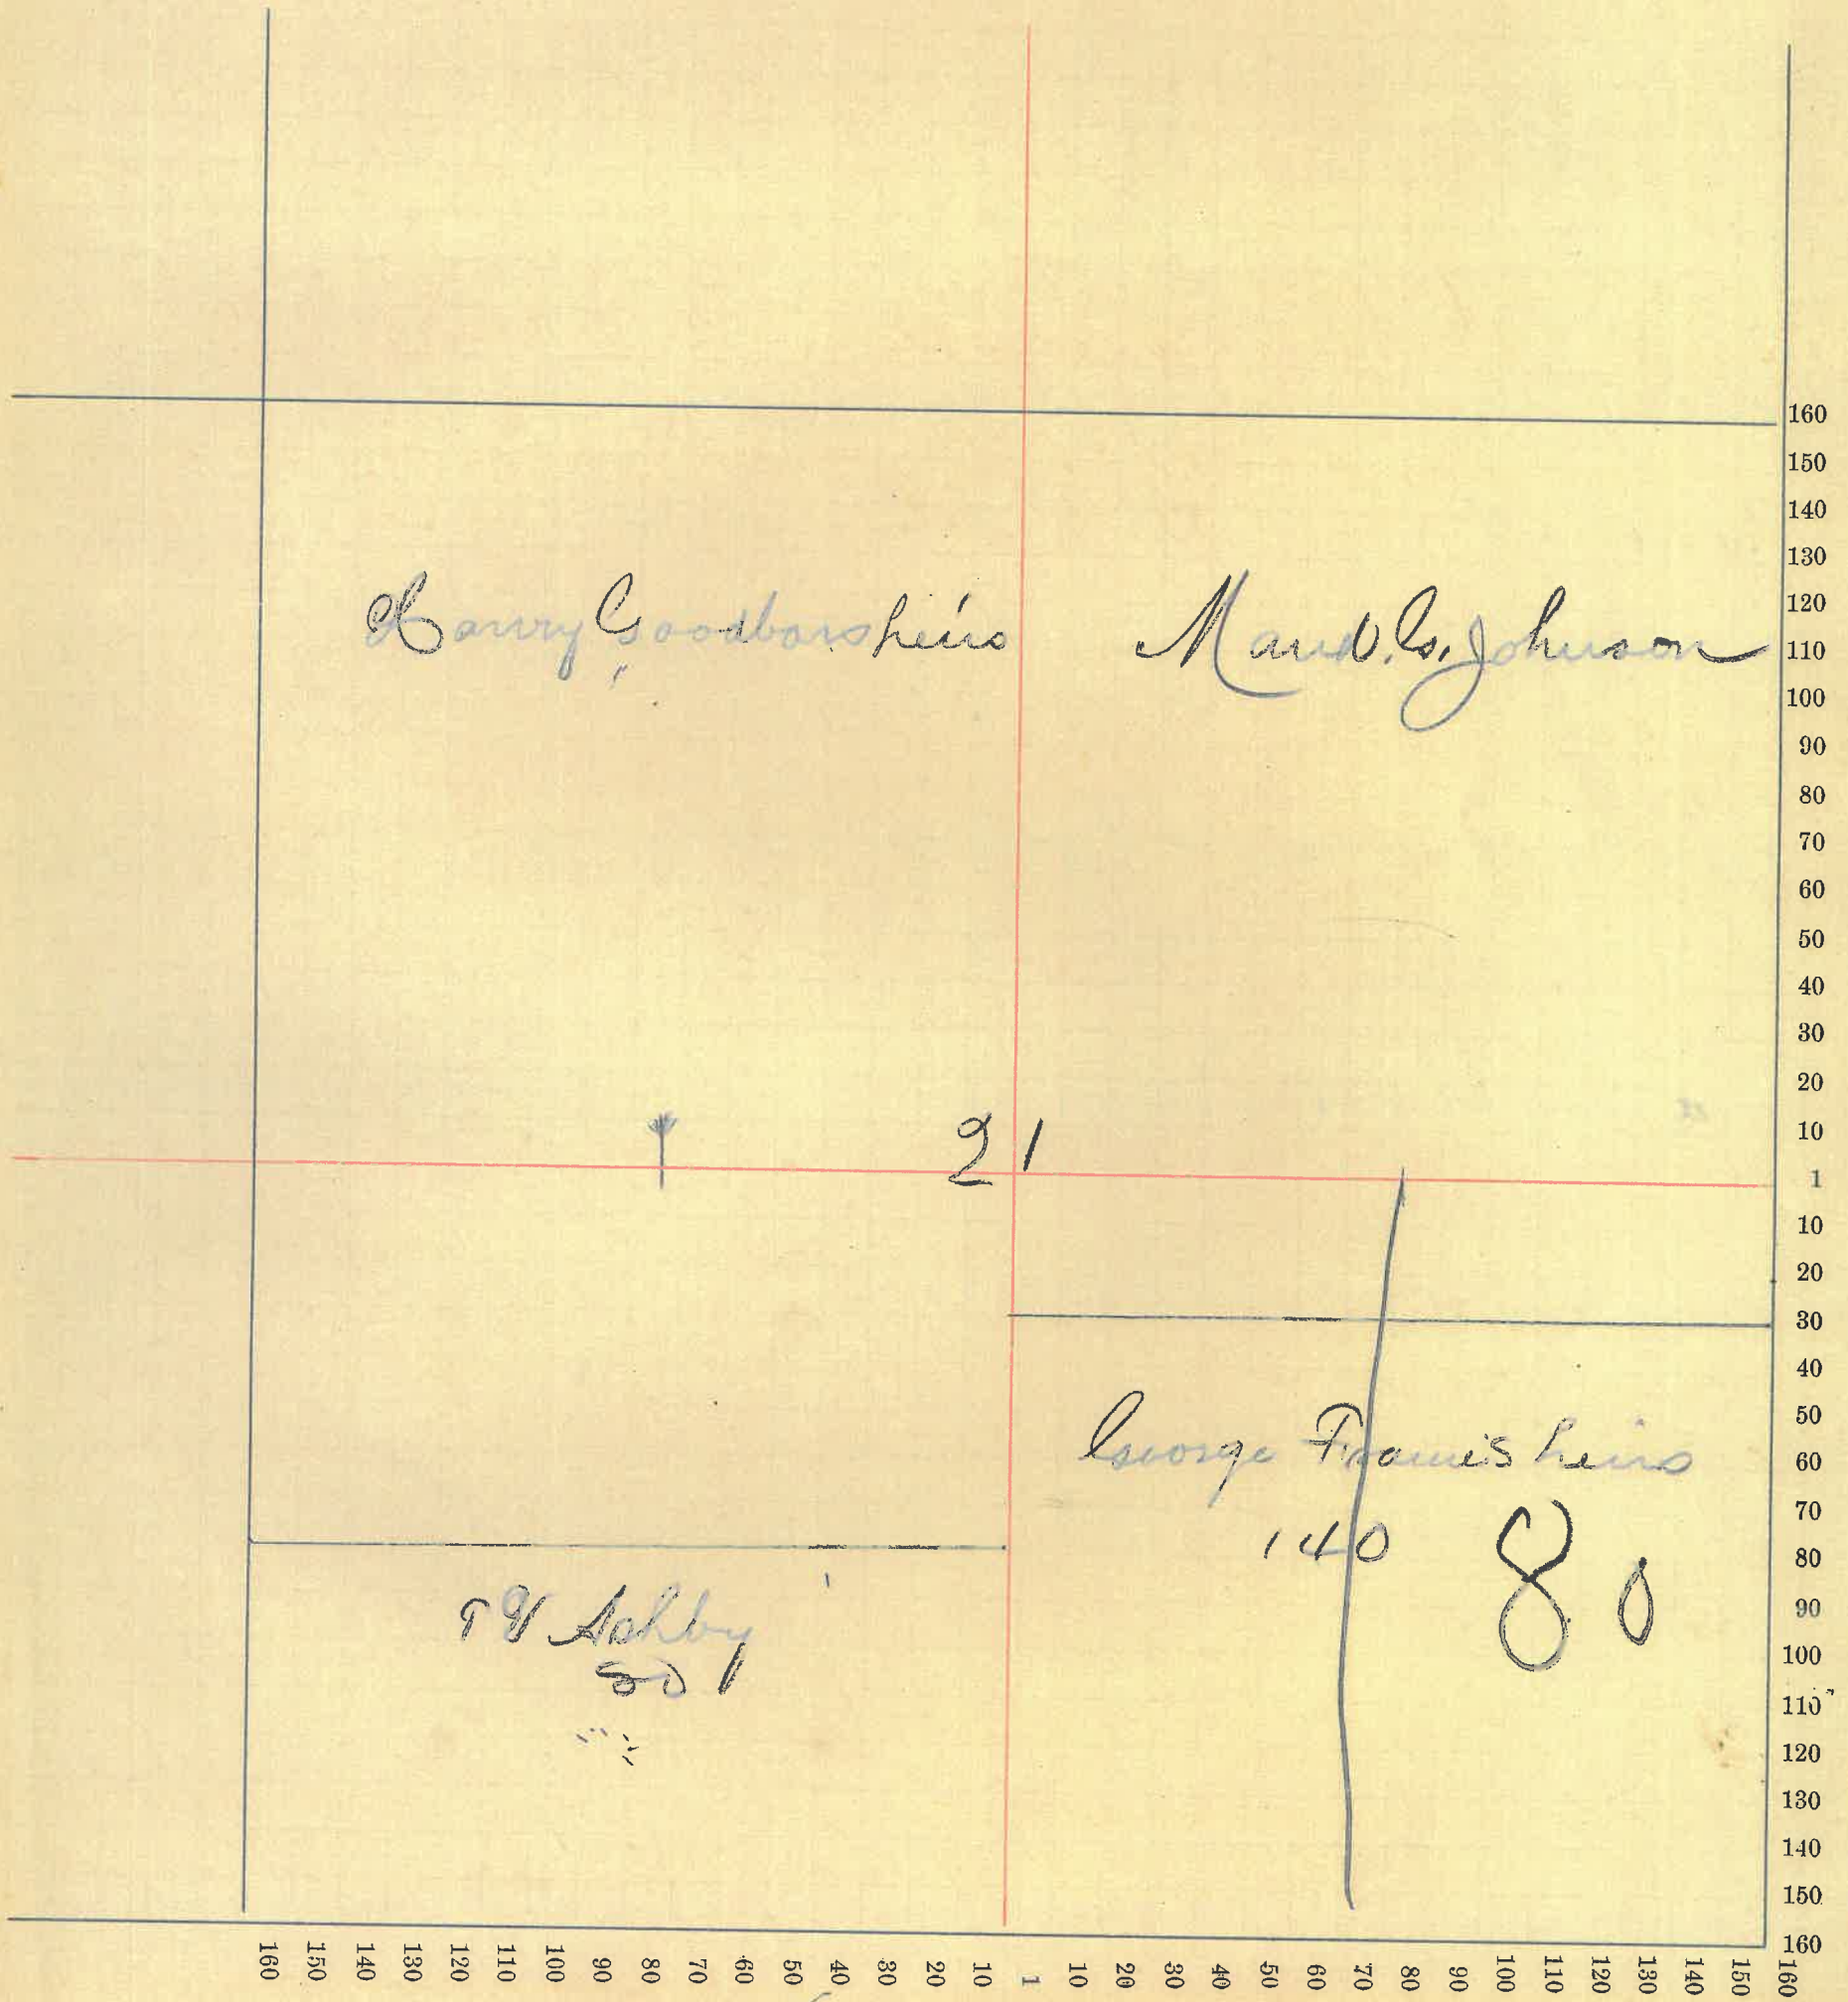 Harry Goodbars heirs
Maud. G. Johnson
21
George Frameis heirs
140 80
T Y Ashby
80
160
150
140
130
120
110
100
90
80
70
60
50
40
30
20
10
1
10
20
30
40
50
60
70
80
90
100
110
120
130
140
150
160
160 150 140 130 120 110 100 90 80 70 60 50 40 30 20 10 1 10 20 30 40 50 60 70 80 90 100 110 120 130 140 150 160